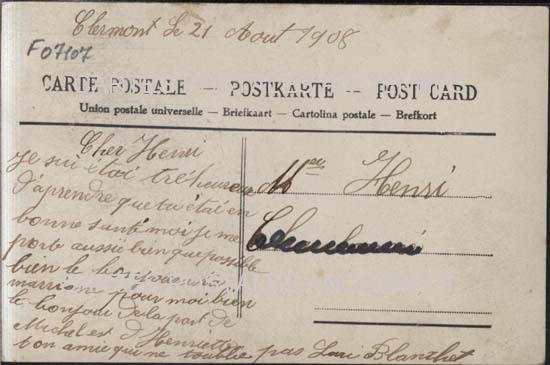 Clermont le 21 Aout 1908
F07107
CARTE POSTALE — POSTKARTE — POST CARD
Union postale universelle — Briefkaart — Cartolina postale — Brefkort
Cher Henri
Je sui étai tré heureux
d'aprendre que tu étai en
bonne santé moi je me
porte aussie bien que possible
bien le bonjour
marriane pour moi bien
le bonjour de la part de
Michel et d'Henriette
bon amie qui ne t'oublie pas Blanchet
Henri